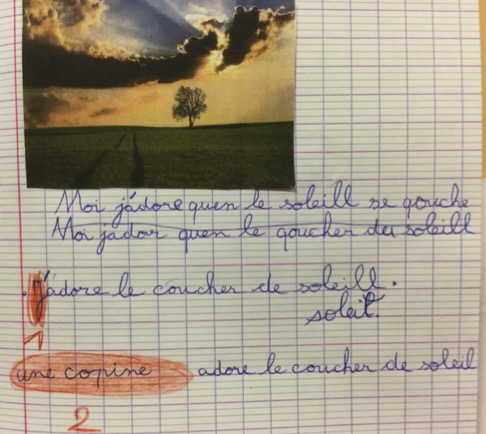 Moi j'adore quen le soleill se gouche
Moi jador quen le goucher du soleill
. J'adore le coucher de soleill.
soleil.
1
une copine adore le coucher de soleil
2